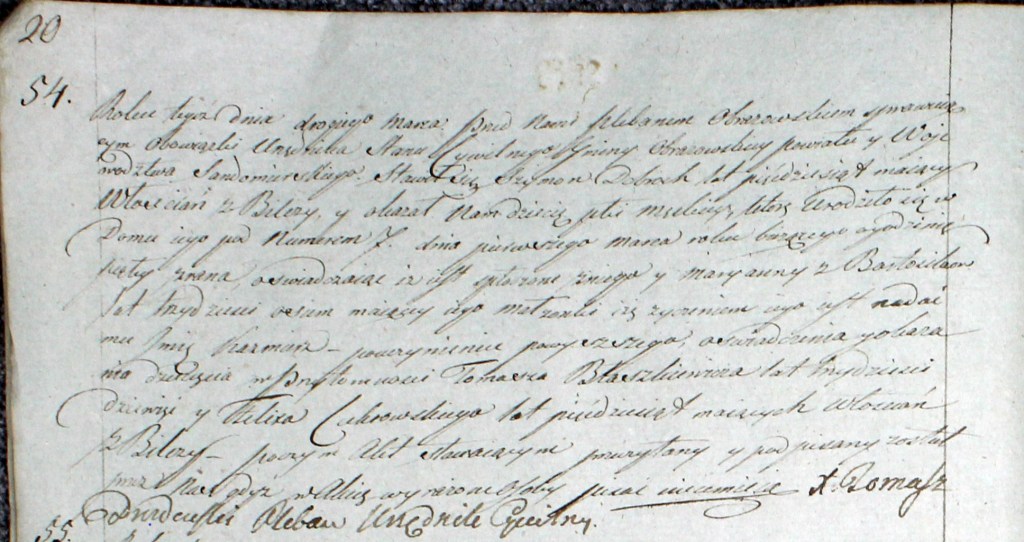 20
54.
Roku tegoż dnia drogiego Marca przed Nami Plebanem Obrazowskiem sprawuią
cym Obowiązki Urzędnika Stanu Cywilnego Gminy Obrazowskiey powiatu y Woje
wodztwa Sandomirskiego, Stawił się Szymon Dobroch lat pięćdziesiąt maiący
Włoscian z Bilczy, y okazał Nam dziecię płci męskiey, które urodziło się w
Domu iego pod Numerem 7. dnia pierwszego marca roku bieżącego o godzinie
piąty zrana oswiadczaiąc iż iest spłodzone z niego y Maryanny z
lat trzydzieści osum maiący iego małżonki iż życzeniem iego iest nadać
mu Imię Kazmirz – po uczynieniu powyższego, oswiadczenia y okaza
nia dziecięcia w Przytomności Tomasza Błaszkiewicza lat trzydzieści
dziewięć y Felixa lat pięćdziesiąt maiących Włoscian
z Bilczy – poczym Akt stawaiącym przeczytany y podpisany został
przez Nas gdyż w Akcie wyrażone Osoby pisać nieumieią X. Tomasz
Pleban Urzędnik Cywilny.
55.